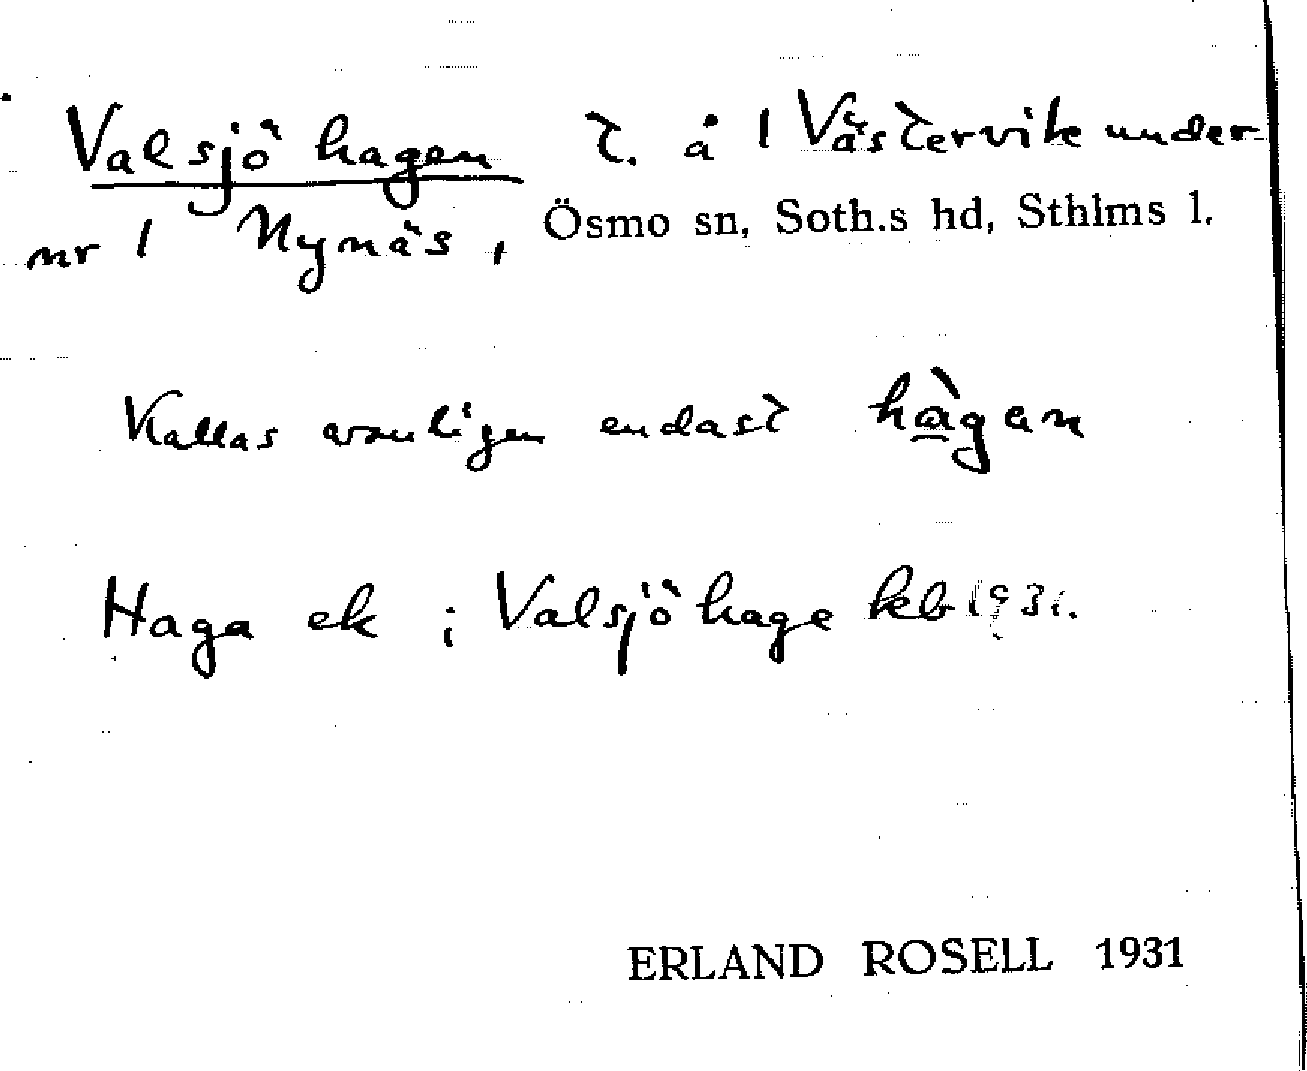 Valsjöhagen t. å 1 Västervik under
nr 1 Nynäs, Ösmo sn, Soth.s hd, Sthlms l.
Kallas vanligen endast hàgen
Haga ek i Valsjöhage kb 1931.
ERLAND ROSELL 1931